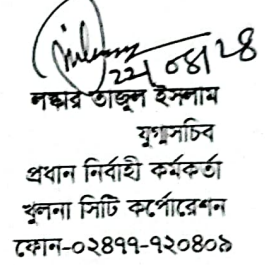 ২২/০৪/২৪
লস্কার তাজুল ইসলাম
যুগ্মসচিব
প্রধান নির্বাহী কর্মকর্তা
খুলনা সিটি কর্পোরেশন
ফোন-০২৪৭৭-৭২০৪০৯